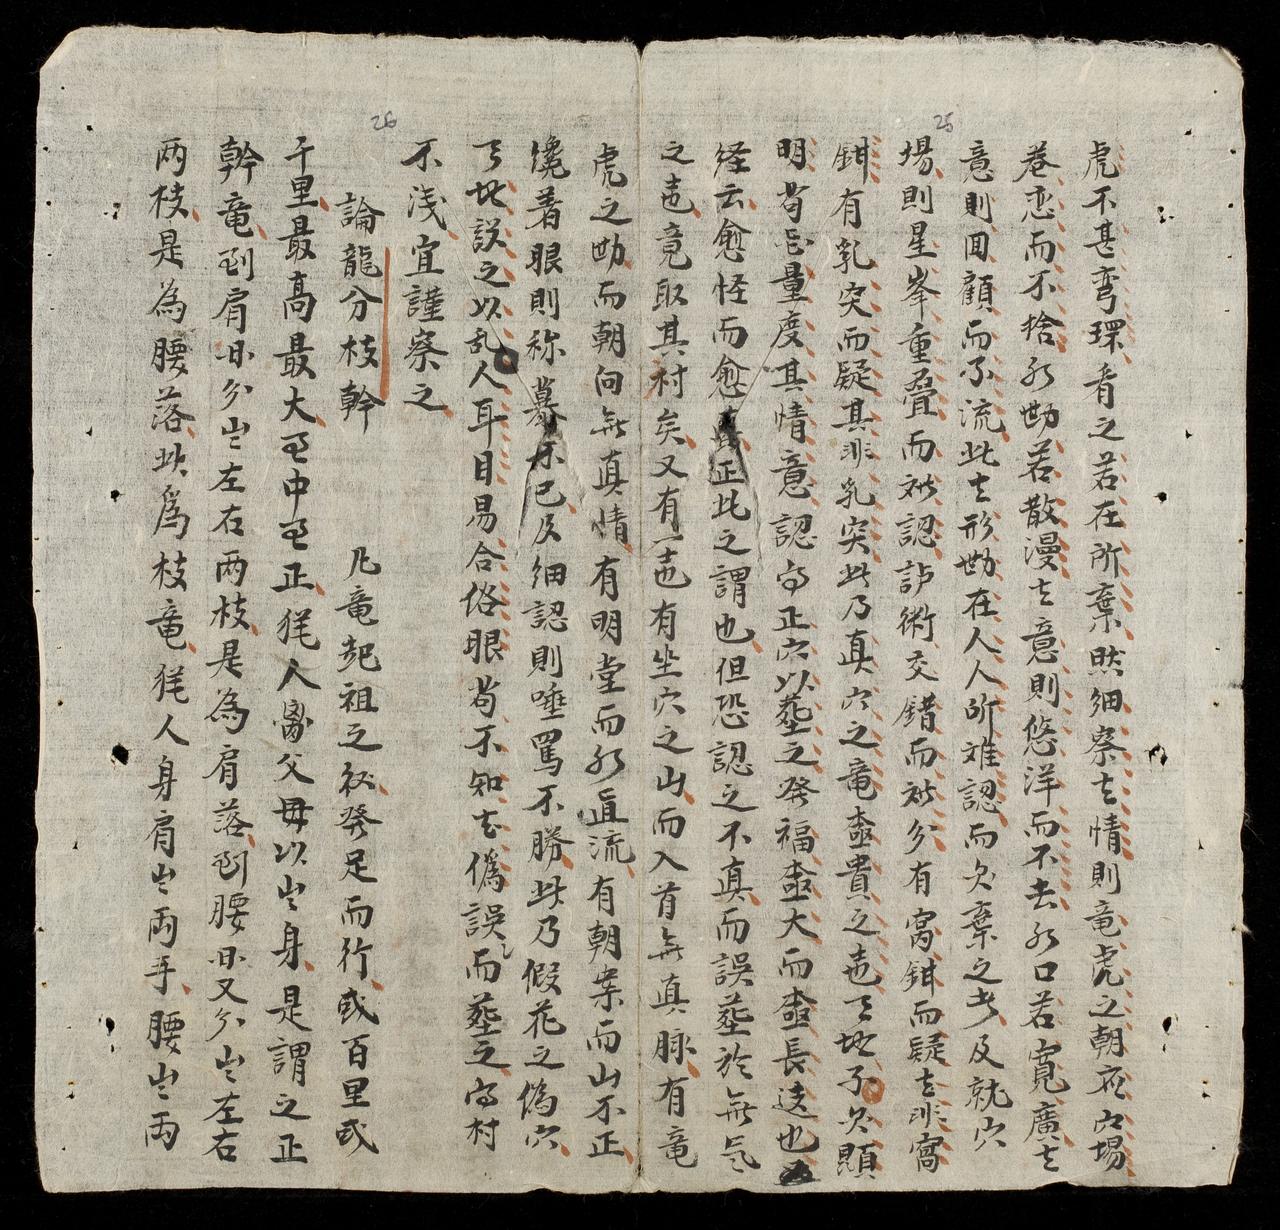 25
虎不甚弯環看之若在所棄然細察其情則竜虎之朝应穴場
巻恋而不捨水势若散漫其意則悠洋而不去水口若寛廣其
意則回顧而不流此其形势在人人所难認而欠棄之者及就穴
場則星峯重疊而难認訣術交錯而难分有窩鉗而疑其非窩
鉗有乳突而疑其非乳突此乃真穴之竜益貴之 天地不欠顕
明苟 量度其情意認 正穴以塟之発福益大而益長远也
経云愈怪而愈真正此之謂也但恐認之不真而誤塟於無気
之 竟取其村矣又有一 有坐穴之山而入首無真脉有竜
26
虎之势而朝向無真情有明堂而水直流有朝案而山不正
繞着眼則称慕不已及细認則唾罵不勝此乃假花之偽穴
天地設之以乱人耳目易合俗眼苟不知其偽誤而塟之 村
不浅宜謹察之
論龍分枝幹 凡竜起祖之初発足而行或百里或
千里最高最大至中至正猶人 父母以 身是謂之正
幹竜到肩 分 左右两枝是為肩落到腰 又分 左右
两枝是為腰落此為枝竜猶人身肩 两手腰 两